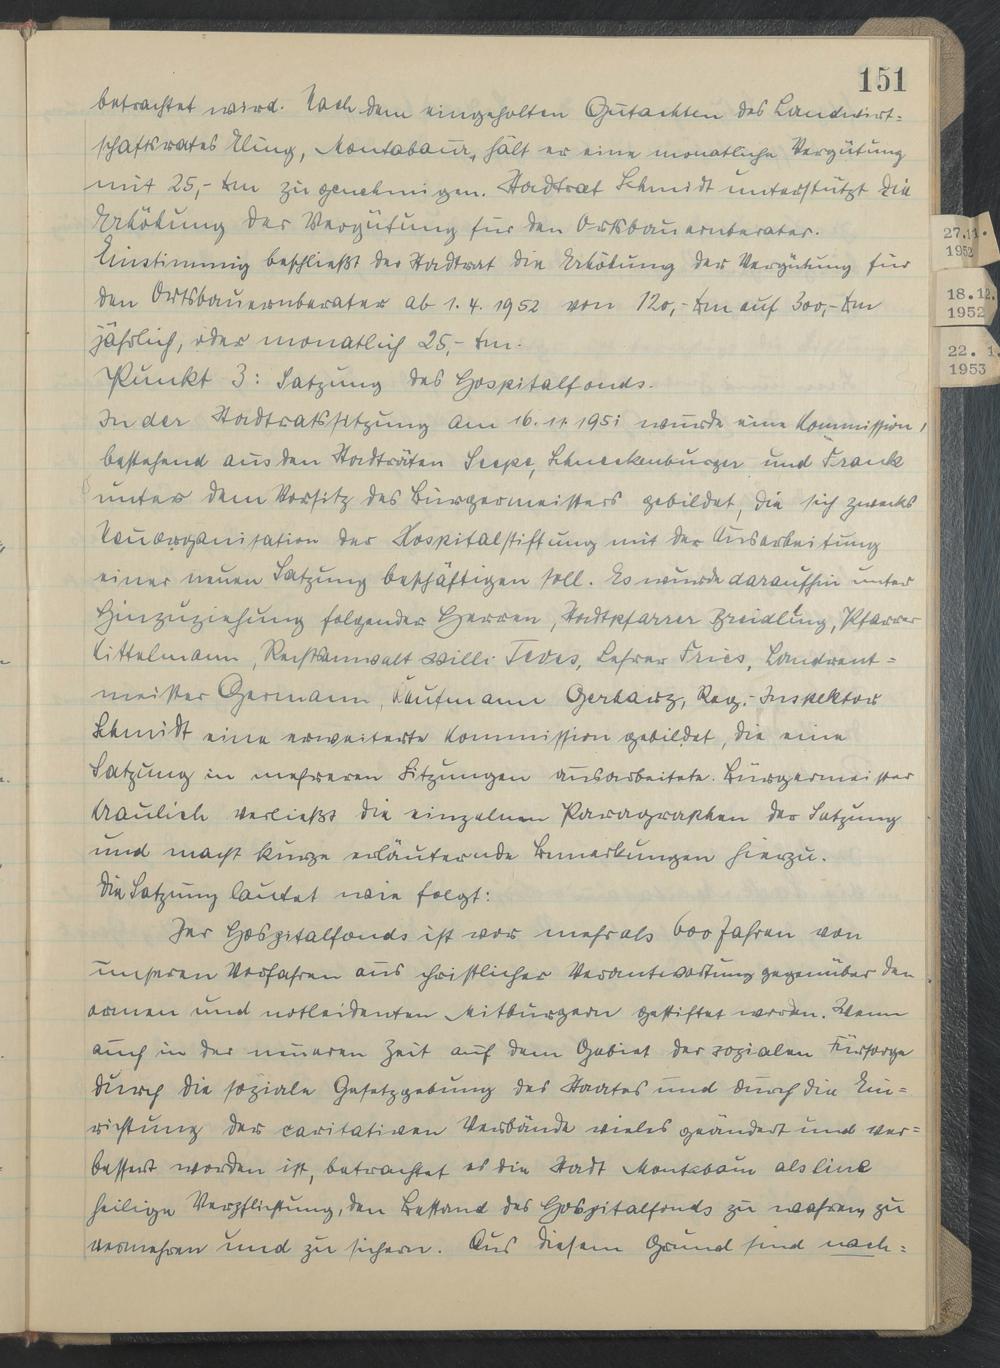 151
betrachtet wird. Nach dem eingeholten Gutachten des Landwirt=
schaftsrates Kling, Montabaur, hält er eine monatliche Vergütung
mit 25,- Dm zu genehmigen. Stadtrat Schmidt unterstützt die
Erhöhung der Vergütung für den Ortsbauernberater.
Einstimmig beschließt der Stadtrat die Erhöhung der Vergütung für
den Ortsbauernberater ab 1.4.1952 von 120,- Dm auf 300,- Dm
jährlich, oder monatlich 25,- Dm.
Punkt 3: Satzung des Hospitalfonds.
In der Stadtratssitzung am 16.11.1951 wurde eine Kommission,
bestehend aus den Stadträten Seepe, Schneckenburger und Frank
unter dem Vorsitz des Bürgermeisters gebildet, die sich zwecks
Neuorganisation der Hospitalstiftung mit der Ausarbeitung
einer neuen Satzung beschäftigen soll. Es wurde daraufhin unter
Hinzuziehung folgender Herren, Stadtpfarrer Breidling, Pfarrer
Kittelmann, Rechtsanwalt Willi Teves, Lehrer Fries, Landrent=
meister Germann, Kaufmann Gerharz, Reg.-Inspektor
Schmidt eine erweiterte Kommission gebildet, die eine
Satzung in mehreren Sitzungen ausarbeitete. Bürgermeister
Kraulich verließt die einzelnen Paragraphen der Satzung
und macht kurze erläuternde Bemerkungen hierzu.
Die Satzung lautet wie folgt:
Der Hospitalfonds ist vor mehr als 600 Jahren von
unseren Vorfahren aus christlicher Verantwortung gegenüber den
armen und notleidenten Mitbürgern gestiftet worden. Wenn
auch in der neueren Zeit auf dem Gebiet der sozialen Fürsorge
durch die soziale Gesetzgebung des Staates und durch die Ein=
richtung der caritativen Verbände vieles geändert und ver=
bessert worden ist, betrachtet es die Stadt Montabaur als eine
heilige Verpflichtung, den Bestand des Hospitalfonds zu wahren, zu
vermehren und zu sichern. Aus diesem Grund sind nach=
27.11.
1952
18.12.
1952
22. 1.
1953